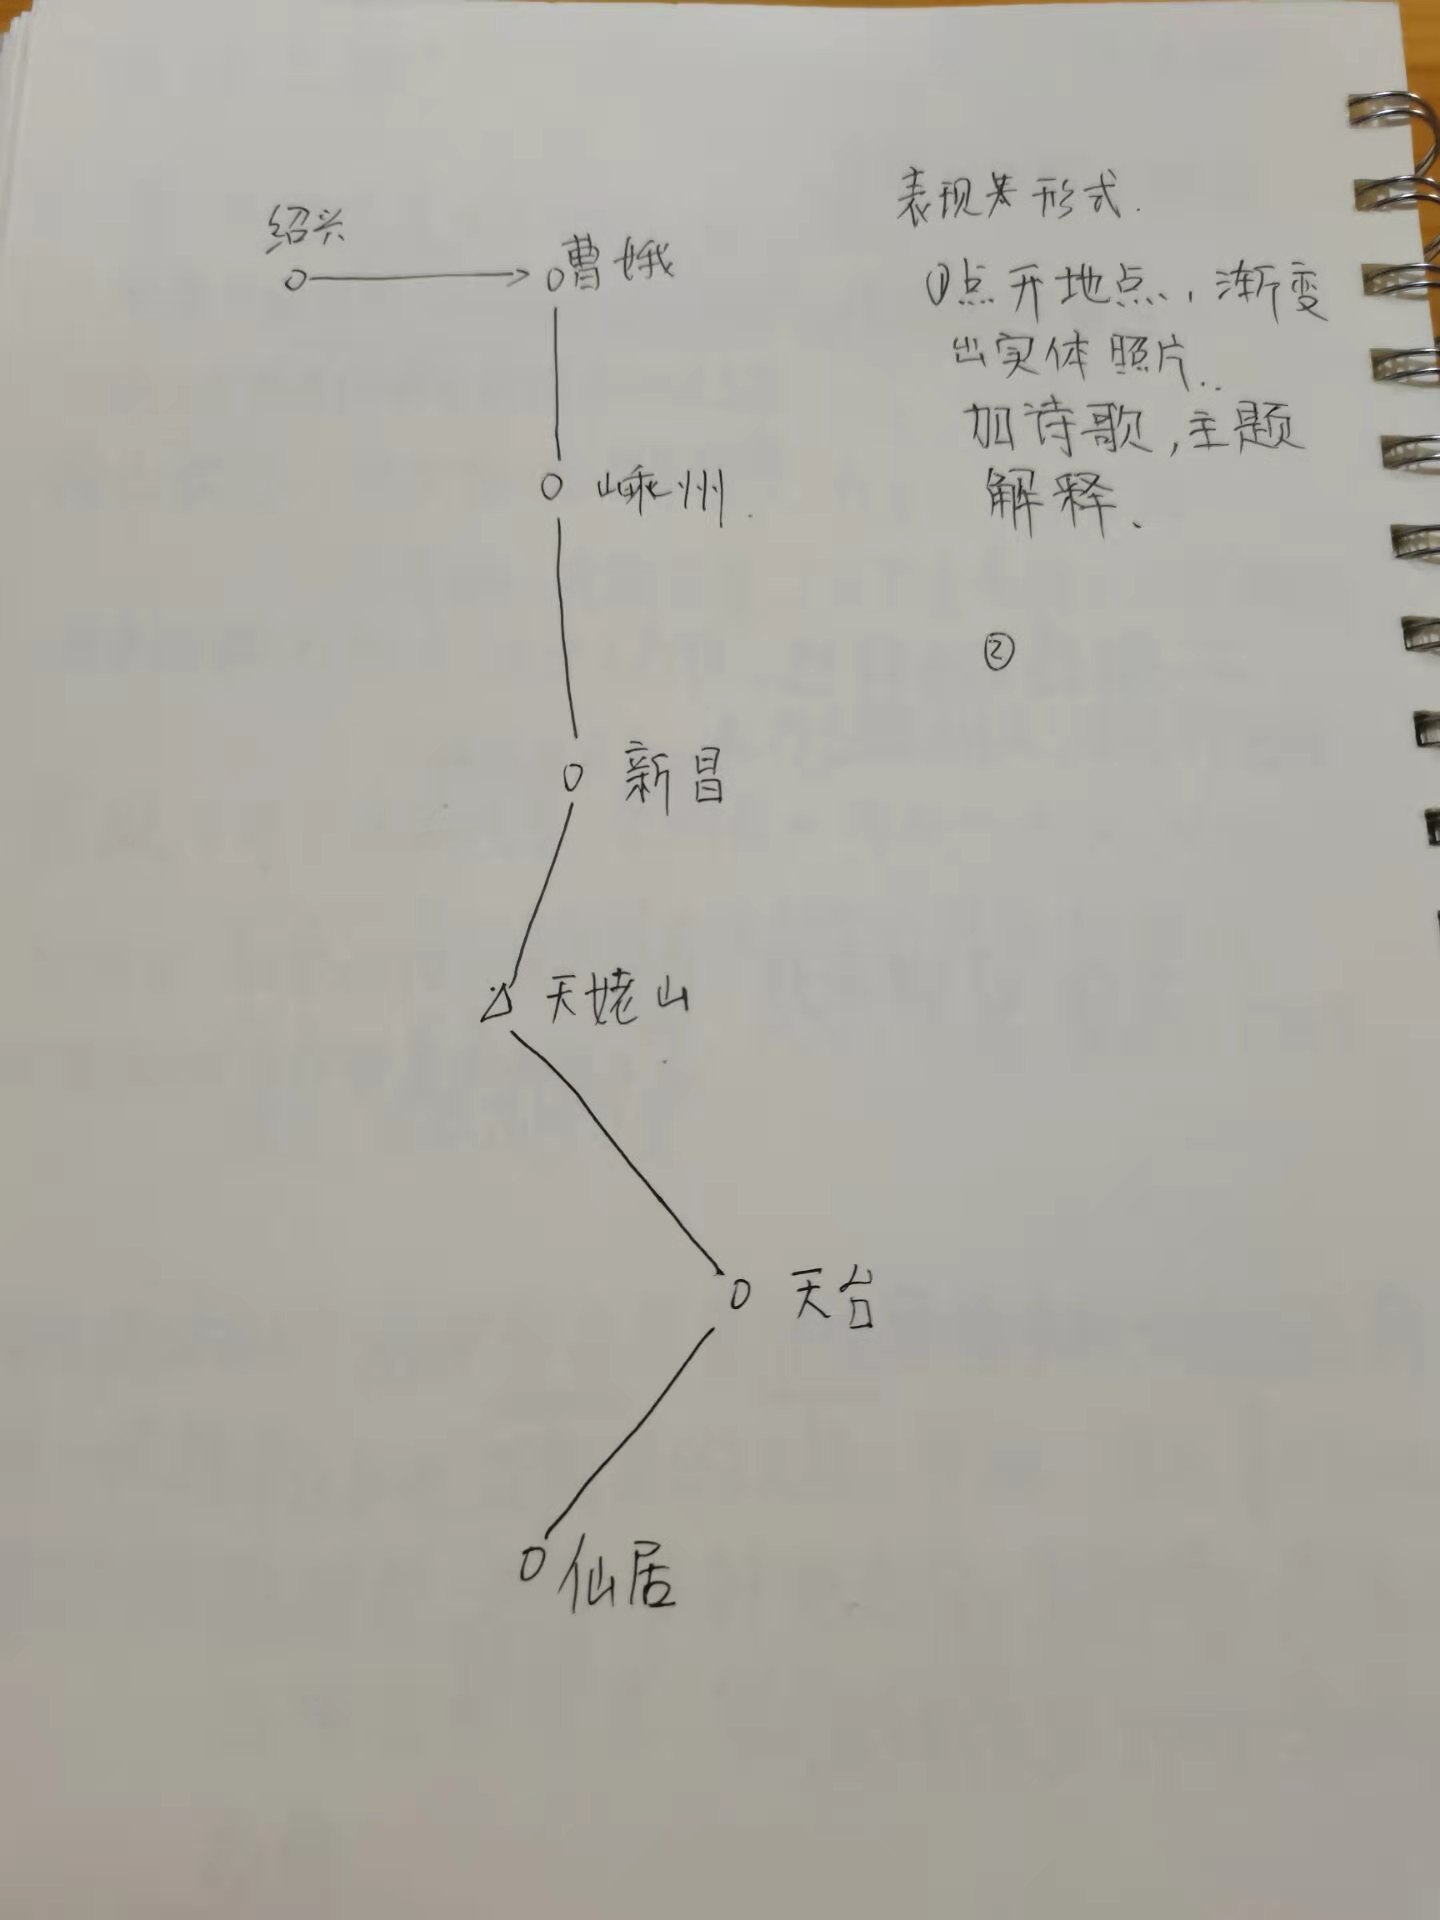 绍兴
曹娥
嵊州.
新昌
天姥山
天台
仙居
表现形式.
①点开地点,渐变
出实体照片..
加诗歌,主题
解释.
②